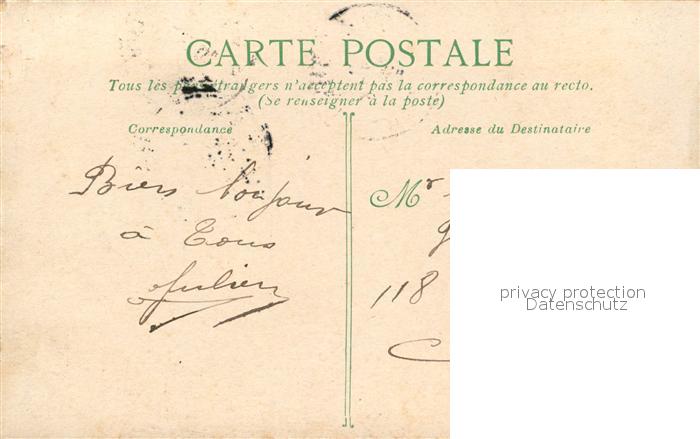 CARTE POSTALE
Tous les pays étrangers n'acceptent pas la correspondance au recto.
(Se renseigner à la poste)
Correspondance
Adresse du Destinataire
Biens bonjour
à Tous
Julien
Mr
118
privacy protection
Datenschutz